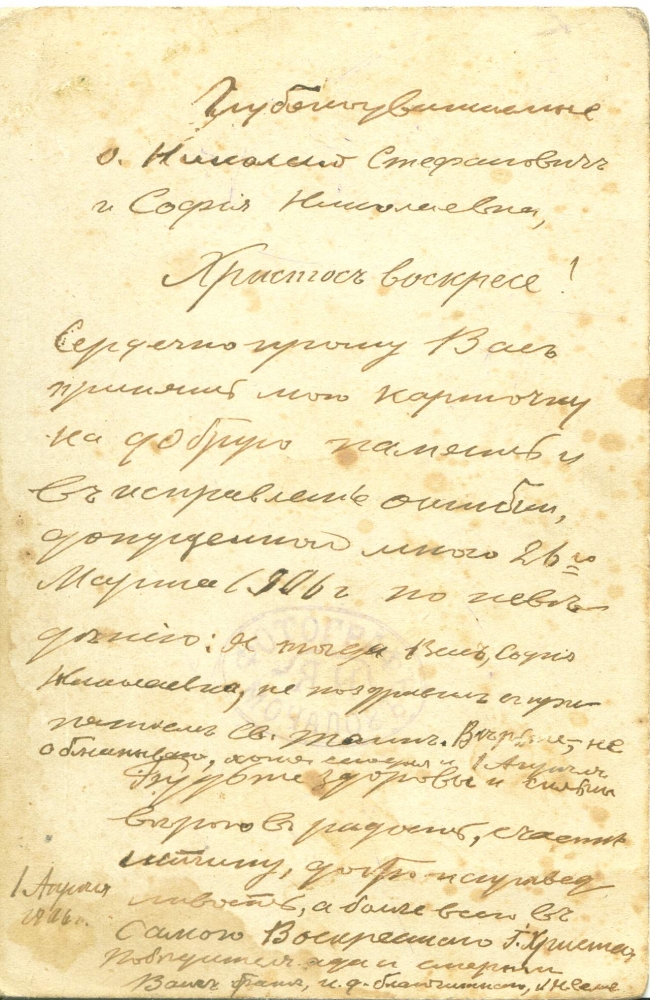 Глубокоуважаемые
о. Николай Стефановичъ
и Софія Николаевна,
Христосъ воскресе!
Сердечно прошу Васъ
принять мою карточку
на добрую память и
въ исправленіе ошибки,
допущенной мною 26го
Марта 1906 г по невѣ-
дѣнію: я тогда Васъ, Софія
Николаевна, не поздравилъ съ при-
нятіемъ Св. Таинъ. Вѣрьте, не
обманываю, хотя сегодня и 1 Апрѣля
Будьте здоровы и сильны
вѣрою въ радость, счастіе
истину, добро и справед
ливость, а более всего въ
Самого Воскресшаго Г. Христа
Победителя ада и смерти
1 Апрѣля
1906 г.
Вашъ братъ, и. д. благочиннаго,
ФОТОГРАФ